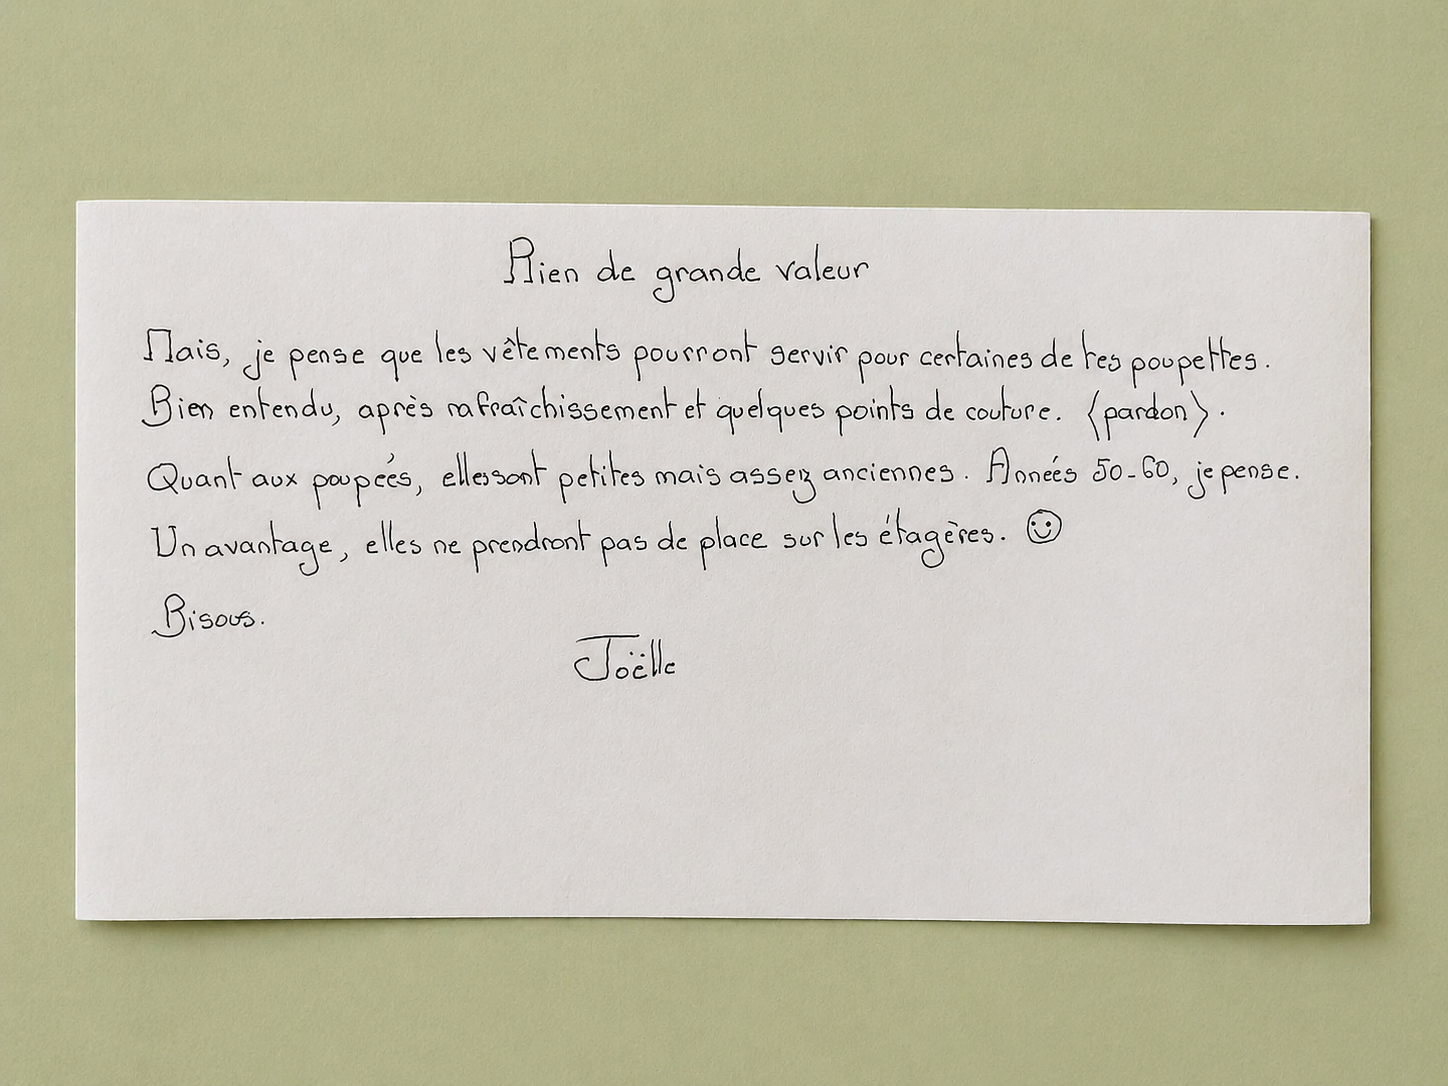 Rien de grande valeur
Mais, je pense que les vêtements pourront servir pour certaines de tes poupettes.
Bien entendu, après rafraîchissement et quelques points de couture. (pardon).
Quant aux poupées, elles sont petites mais assez anciennes. Années 50-60, je pense.
Un avantage, elles ne prendront pas de place sur les étagères. ☺
Bisous.
Joëlle